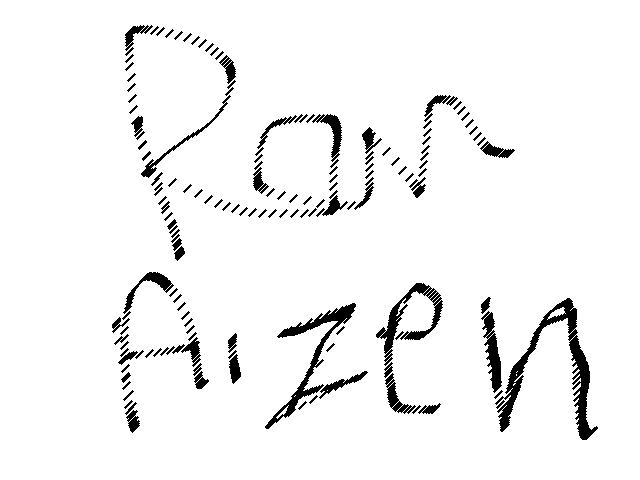 Ran
Aizen